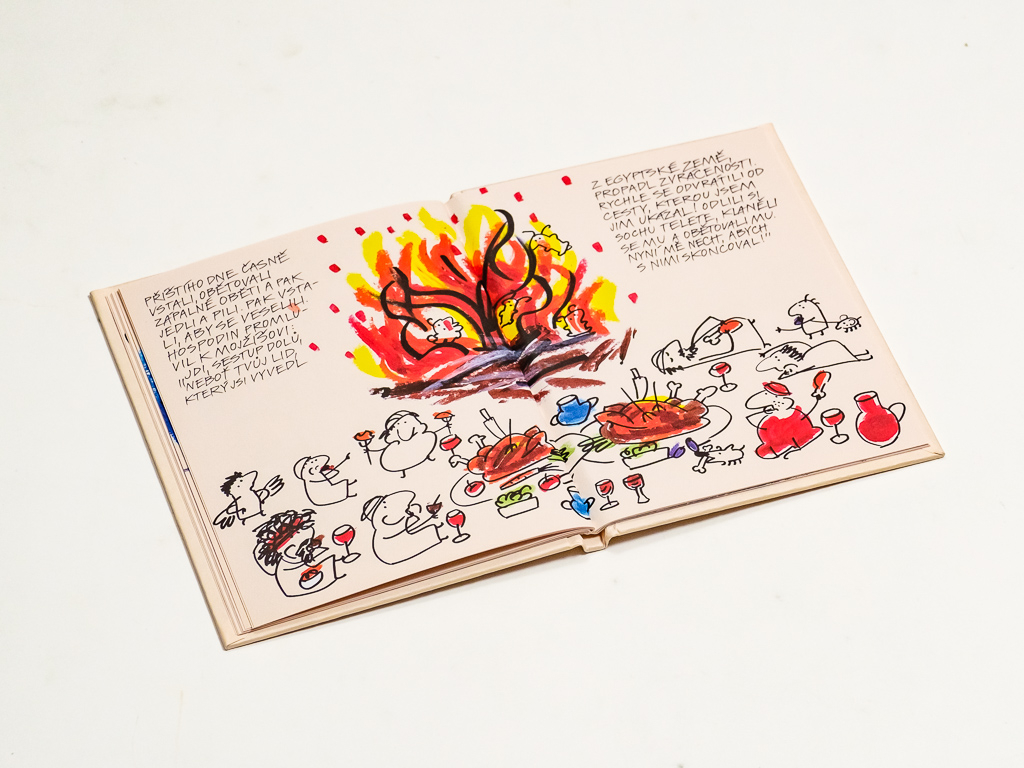 PŘÍŠTÍHO DNE ČASNĚ
VSTALI, OBĚTOVALI
ZÁPALNÉ OBĚTI A PAK
JEDLI A PILI. PAK VSTA-
LI, ABY SE VESELILI.
HOSPODIN PROMLU-
VIL K MOJŽÍŠOVI:
„JDI, SESTUP DOLŮ,
NEBOŤ TVŮJ LID,
KTERÝ JSI VYVEDL
Z EGYPTSKÉ ZEMĚ,
PROPADL ZVRÁCENOSTI.
RYCHLE SE ODVRÁTILI OD
CESTY, KTEROU JSEM
JIM UKÁZAL I ODLILI SI
SOCHU TELETE, KLANĚLI
SE MU A OBĚTOVALI MU.
NYNÍ MĚ NECH, ABYCH
S NIMI SKONCOVAL!“